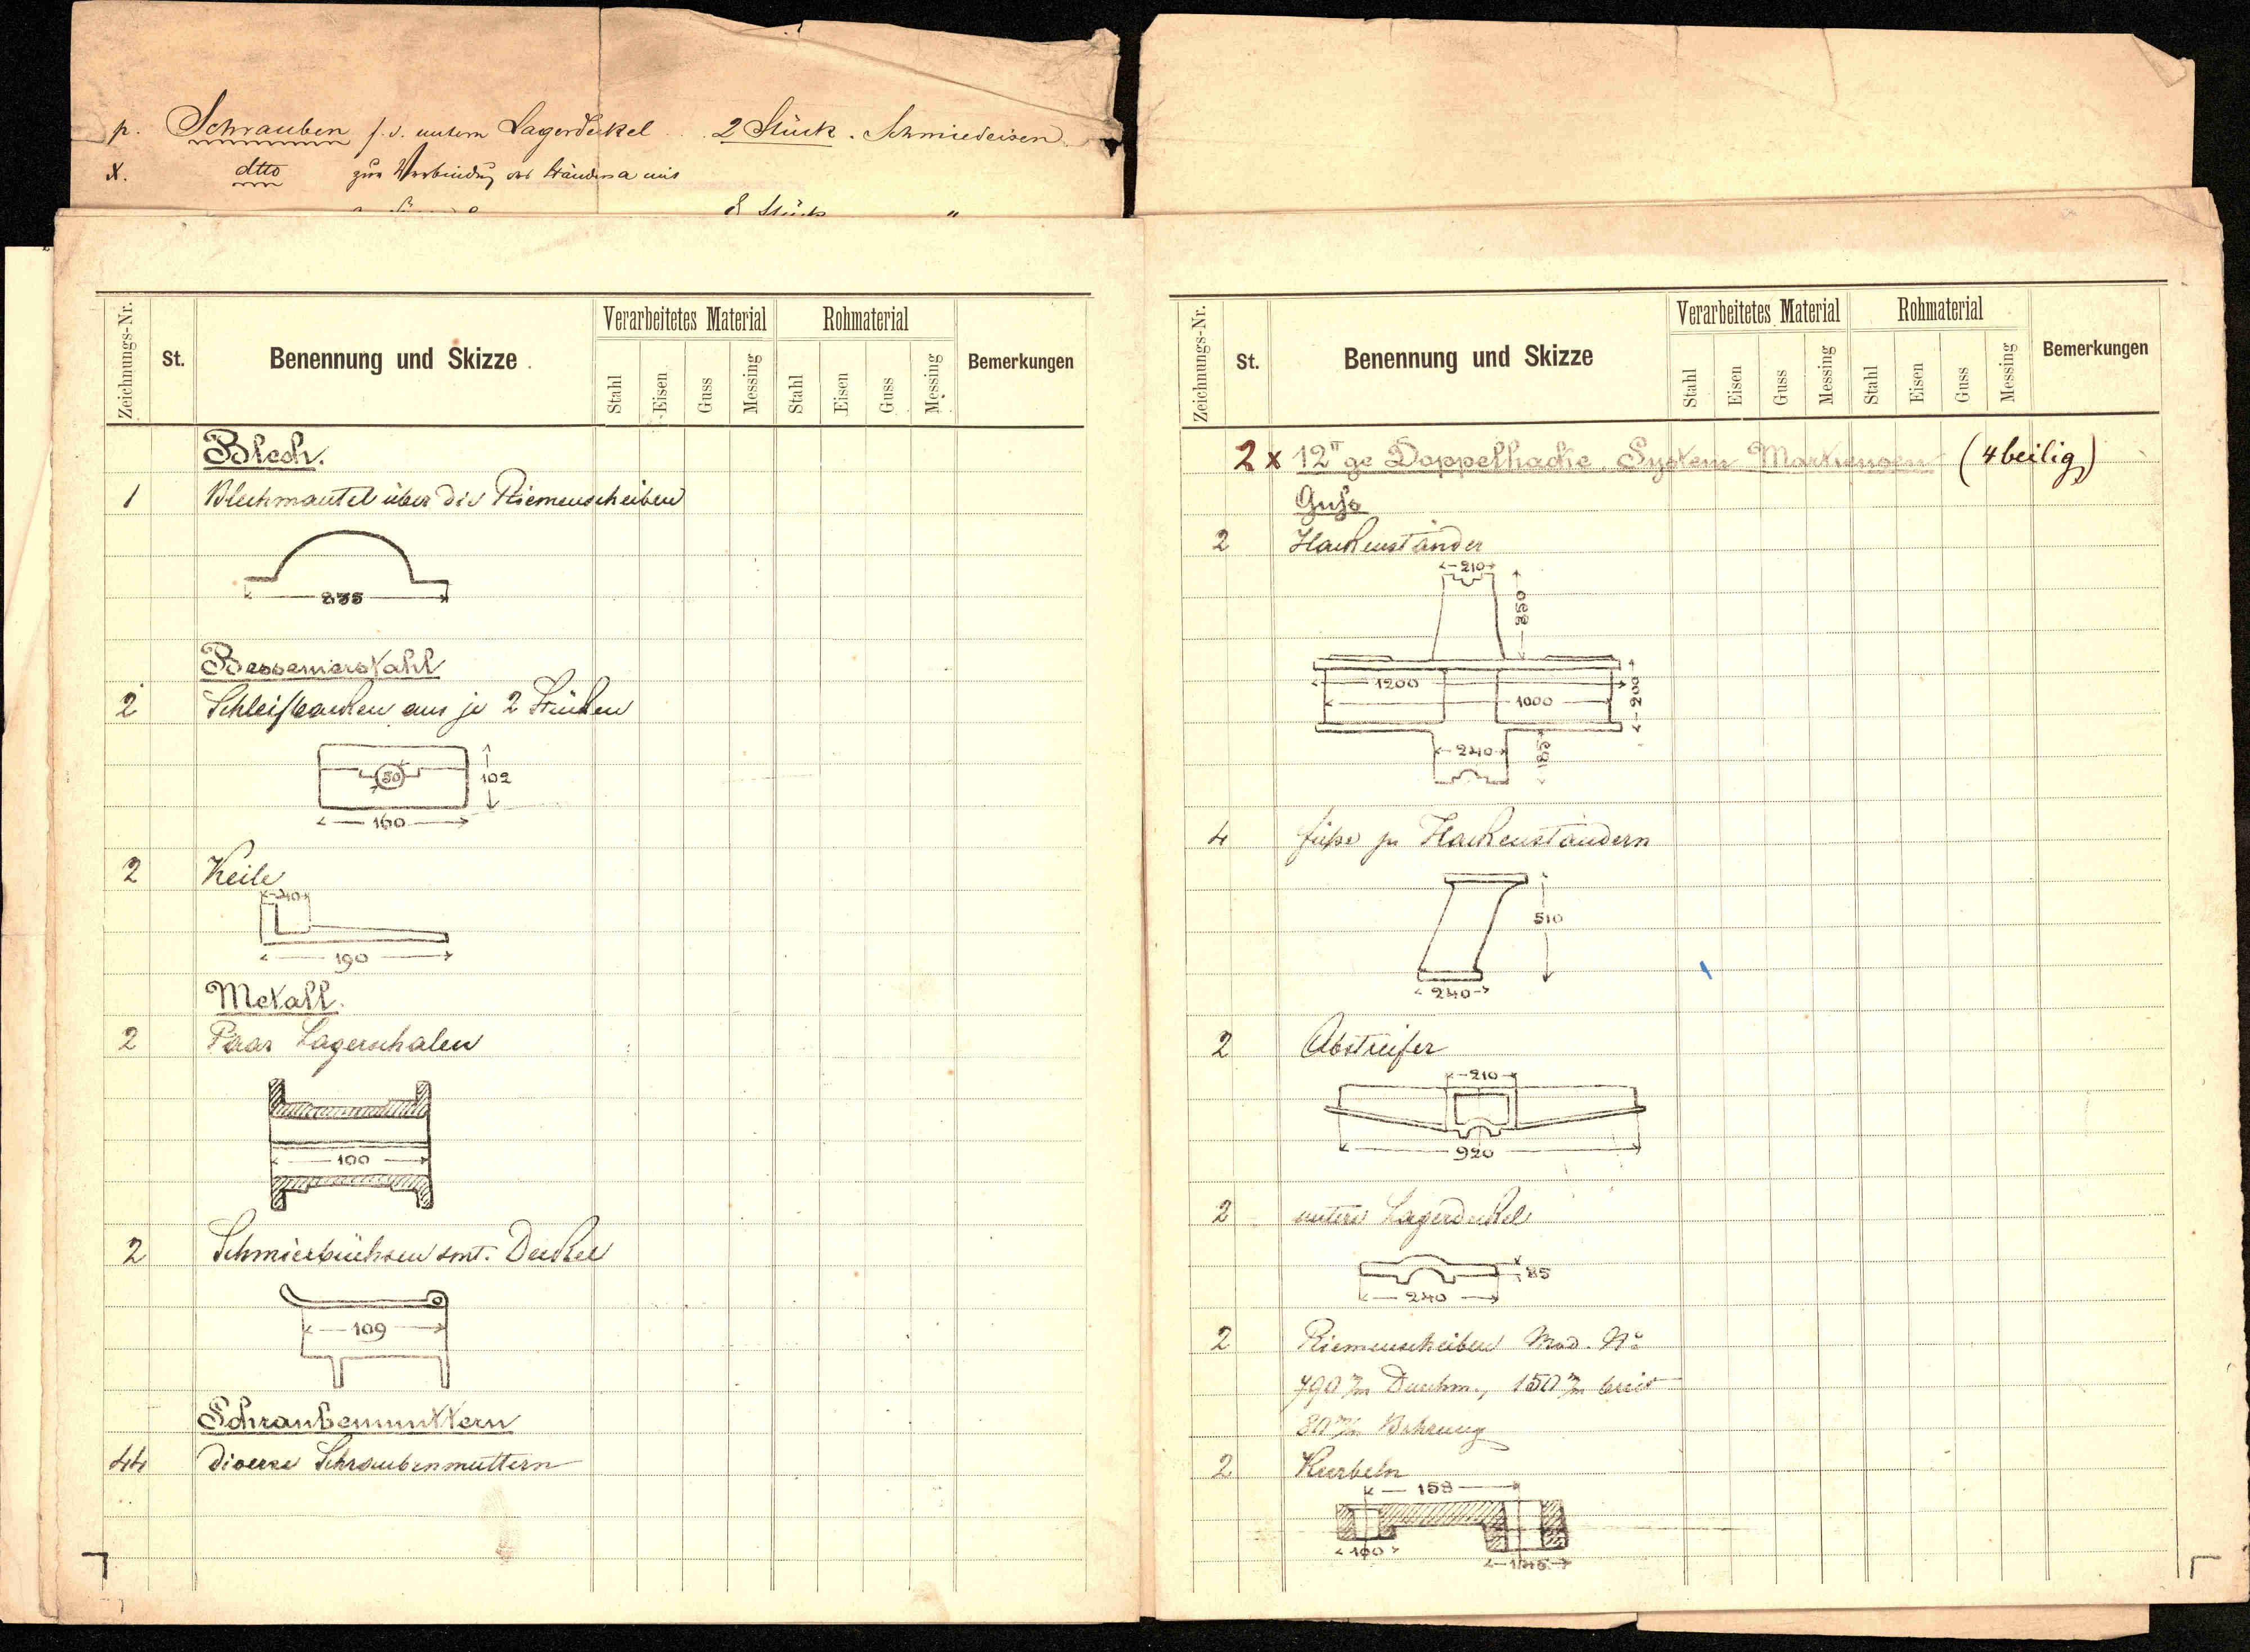 p. Schrauben f. d. untern Lagerdeckel . . 2 Stück . Schmiedeisen
x. dtto zur Verbindung des Ständers a mit
8 Stück "
Zeichnungs-Nr.
St.
Benennung und Skizze
Verarbeitetes Material
Rohmaterial
Bemerkungen
Stahl Eisen Guss Messing Stahl Eisen Guss Messing
Blech.
1 Blechmantel über die Riemenscheiben
835
Bessemerstahl
2 Schleifbacken aus je 2 Stücken
50
102
160
2 Keile
40
190
Metall.
2 Paar Lagerschalen
100
2 Schmierbüchsen smt. Deckel
109
Schraubenmuttern
44 diverse Schraubenmuttern
Zeichnungs-Nr.
St.
Benennung und Skizze
Verarbeitetes Material
Rohmaterial
Bemerkungen
Stahl Eisen Guss Messing Stahl Eisen Guss Messing
2 x 12"ge Doppelhacke System (4 beilig)
Guß
2 Hackenständer
210
850
1200
1000
200
240
185
4 Füße zu Hackenständern
510
240
2 Abstreifer
210
920
2 untere Lagerdeckel
85
240
2 Riemenscheiben Mod. No
790 m/m Durchm., 150 m/m breit
80 m/m Bohrung
2 Kurbeln
158
100
145